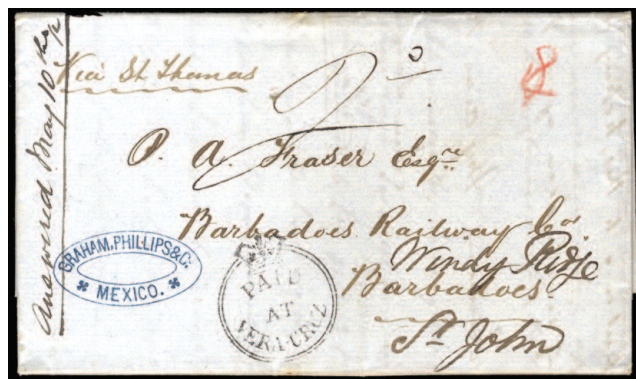 Answered May 10th
Via St Thomas
P. A. Fraser Esqre
Barbadoes Railway Co
Windy Ridge
Barbadoes
St John
GRAHAM, PHILLIPS & Co.
MEXICO.
PAID
AT
VERA-CRUZ